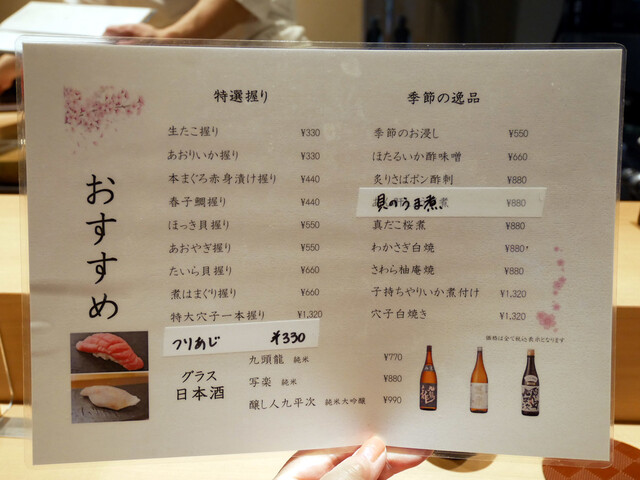 おすすめ
特選握り
生たこ握り ¥330
あおりいか握り ¥330
本まぐろ赤身漬け握り ¥440
春子鯛握り ¥440
ほっき貝握り ¥550
あおやぎ握り ¥550
たいら貝握り ¥660
煮はまぐり握り ¥660
特大穴子一本握り ¥1,320
つりあじ ¥330
グラス
日本酒
九頭龍 純米 ¥770
写楽 純米 ¥880
醸し人九平次 純米大吟醸 ¥990
季節の逸品
季節のお浸し ¥550
ほたるいか酢味噌 ¥660
炙りさばポン酢刺 ¥880
貝のうま煮 ¥880
真だこ桜煮 ¥880
わかさぎ白焼 ¥880
さわら柚庵焼 ¥880
子持ちやりいか煮付け ¥1,320
穴子白焼き ¥1,320
価格は全て税込表示となります